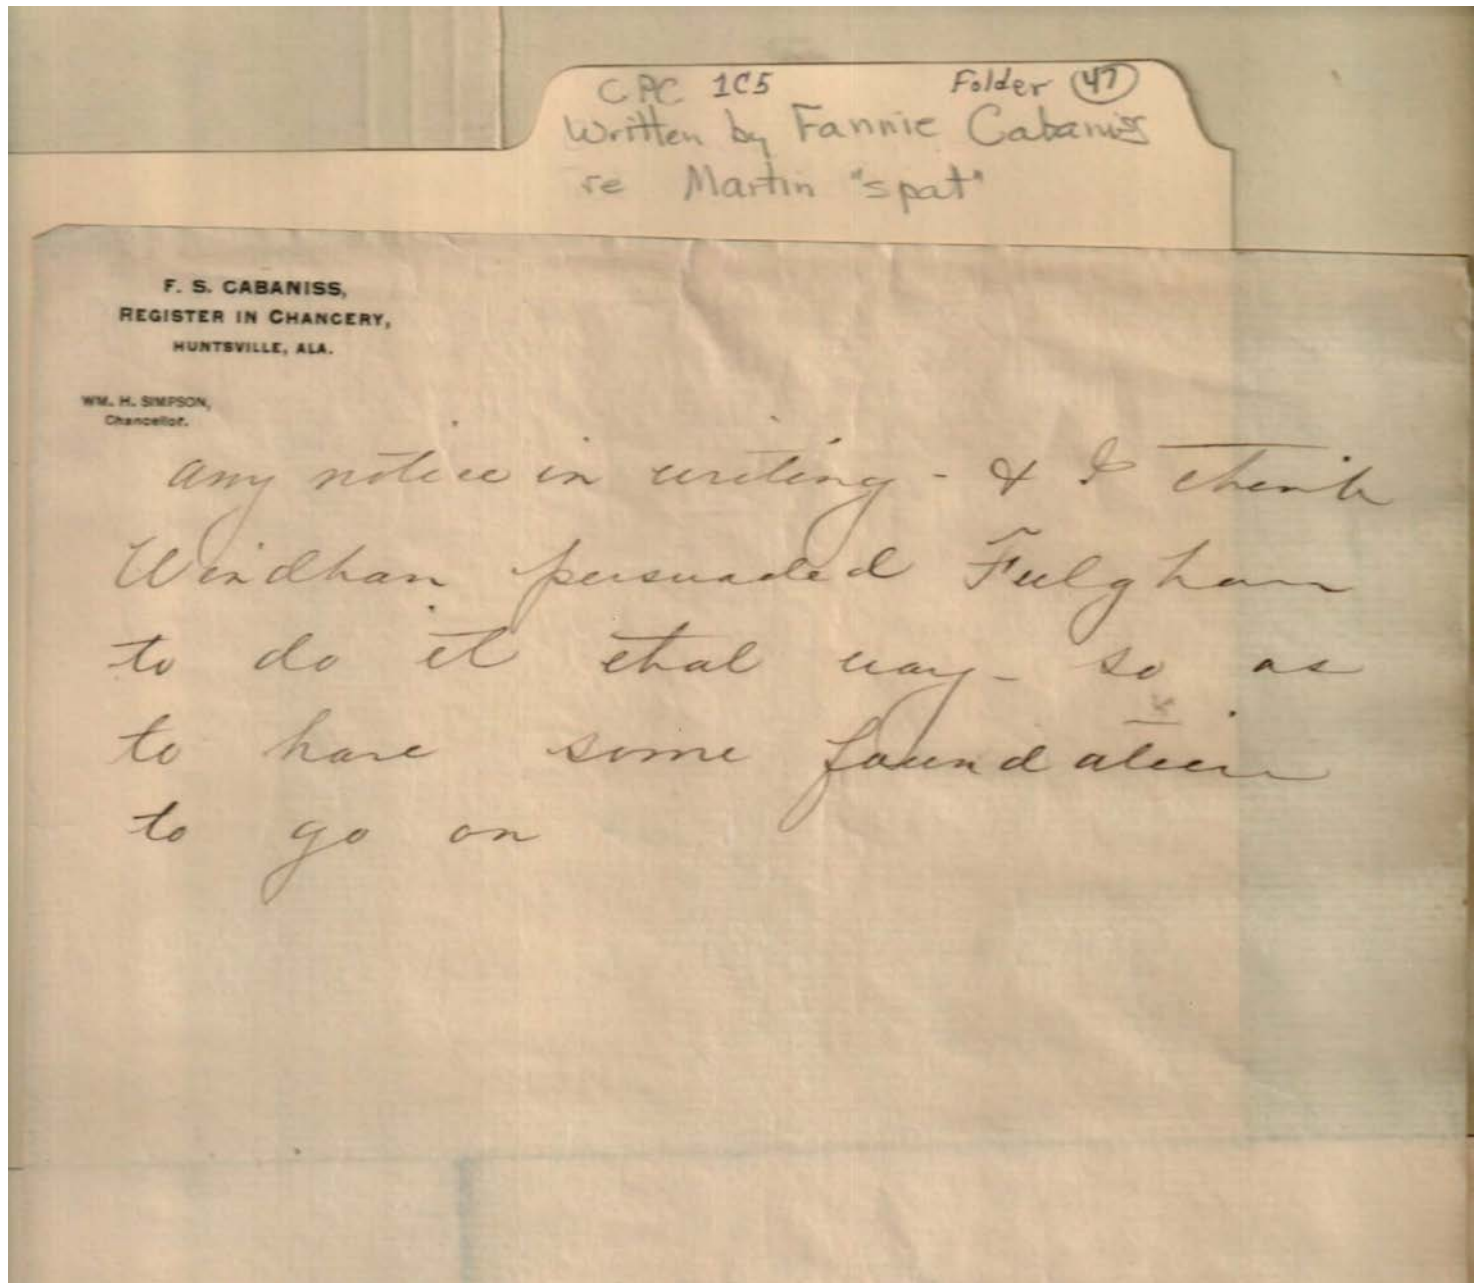 CPC 1C5 Folder 47
Written by Fannie Cabaniss
re Martin "spat"
F. S. CABANISS,
REGISTER IN CHANCERY,
HUNTSVILLE, ALA.
WM. H. SIMPSON,
Chancellor.
any notice in writing - & I think
Windhan persuaded Fulghan
to do it that way - so as
to have some foundation
to go on